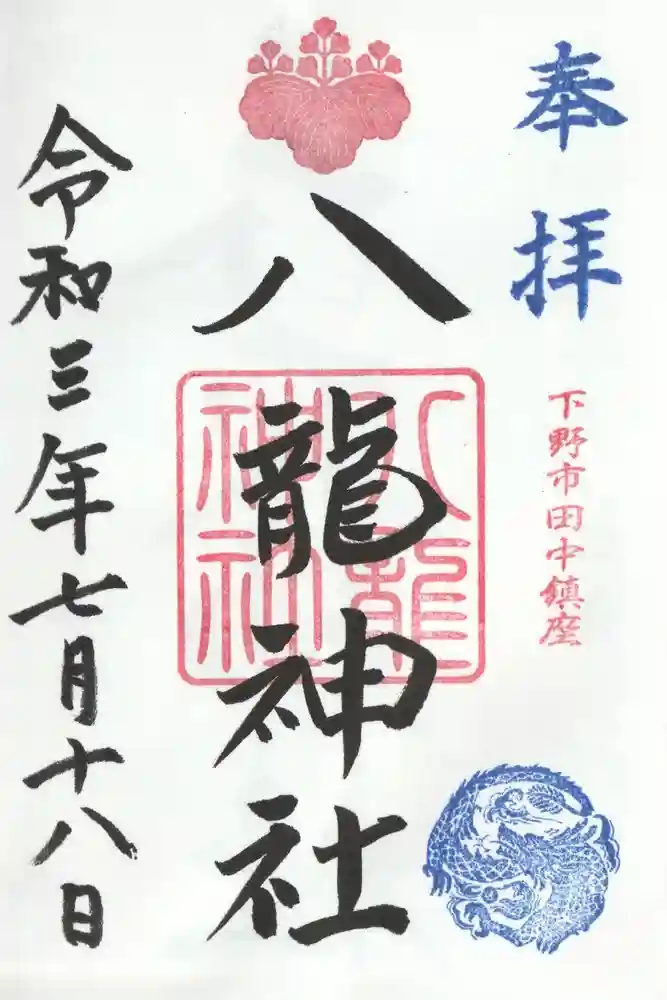 奉拝
下野市田中鎮座
八龍神社
八龍
神社
令和三年七月十八日